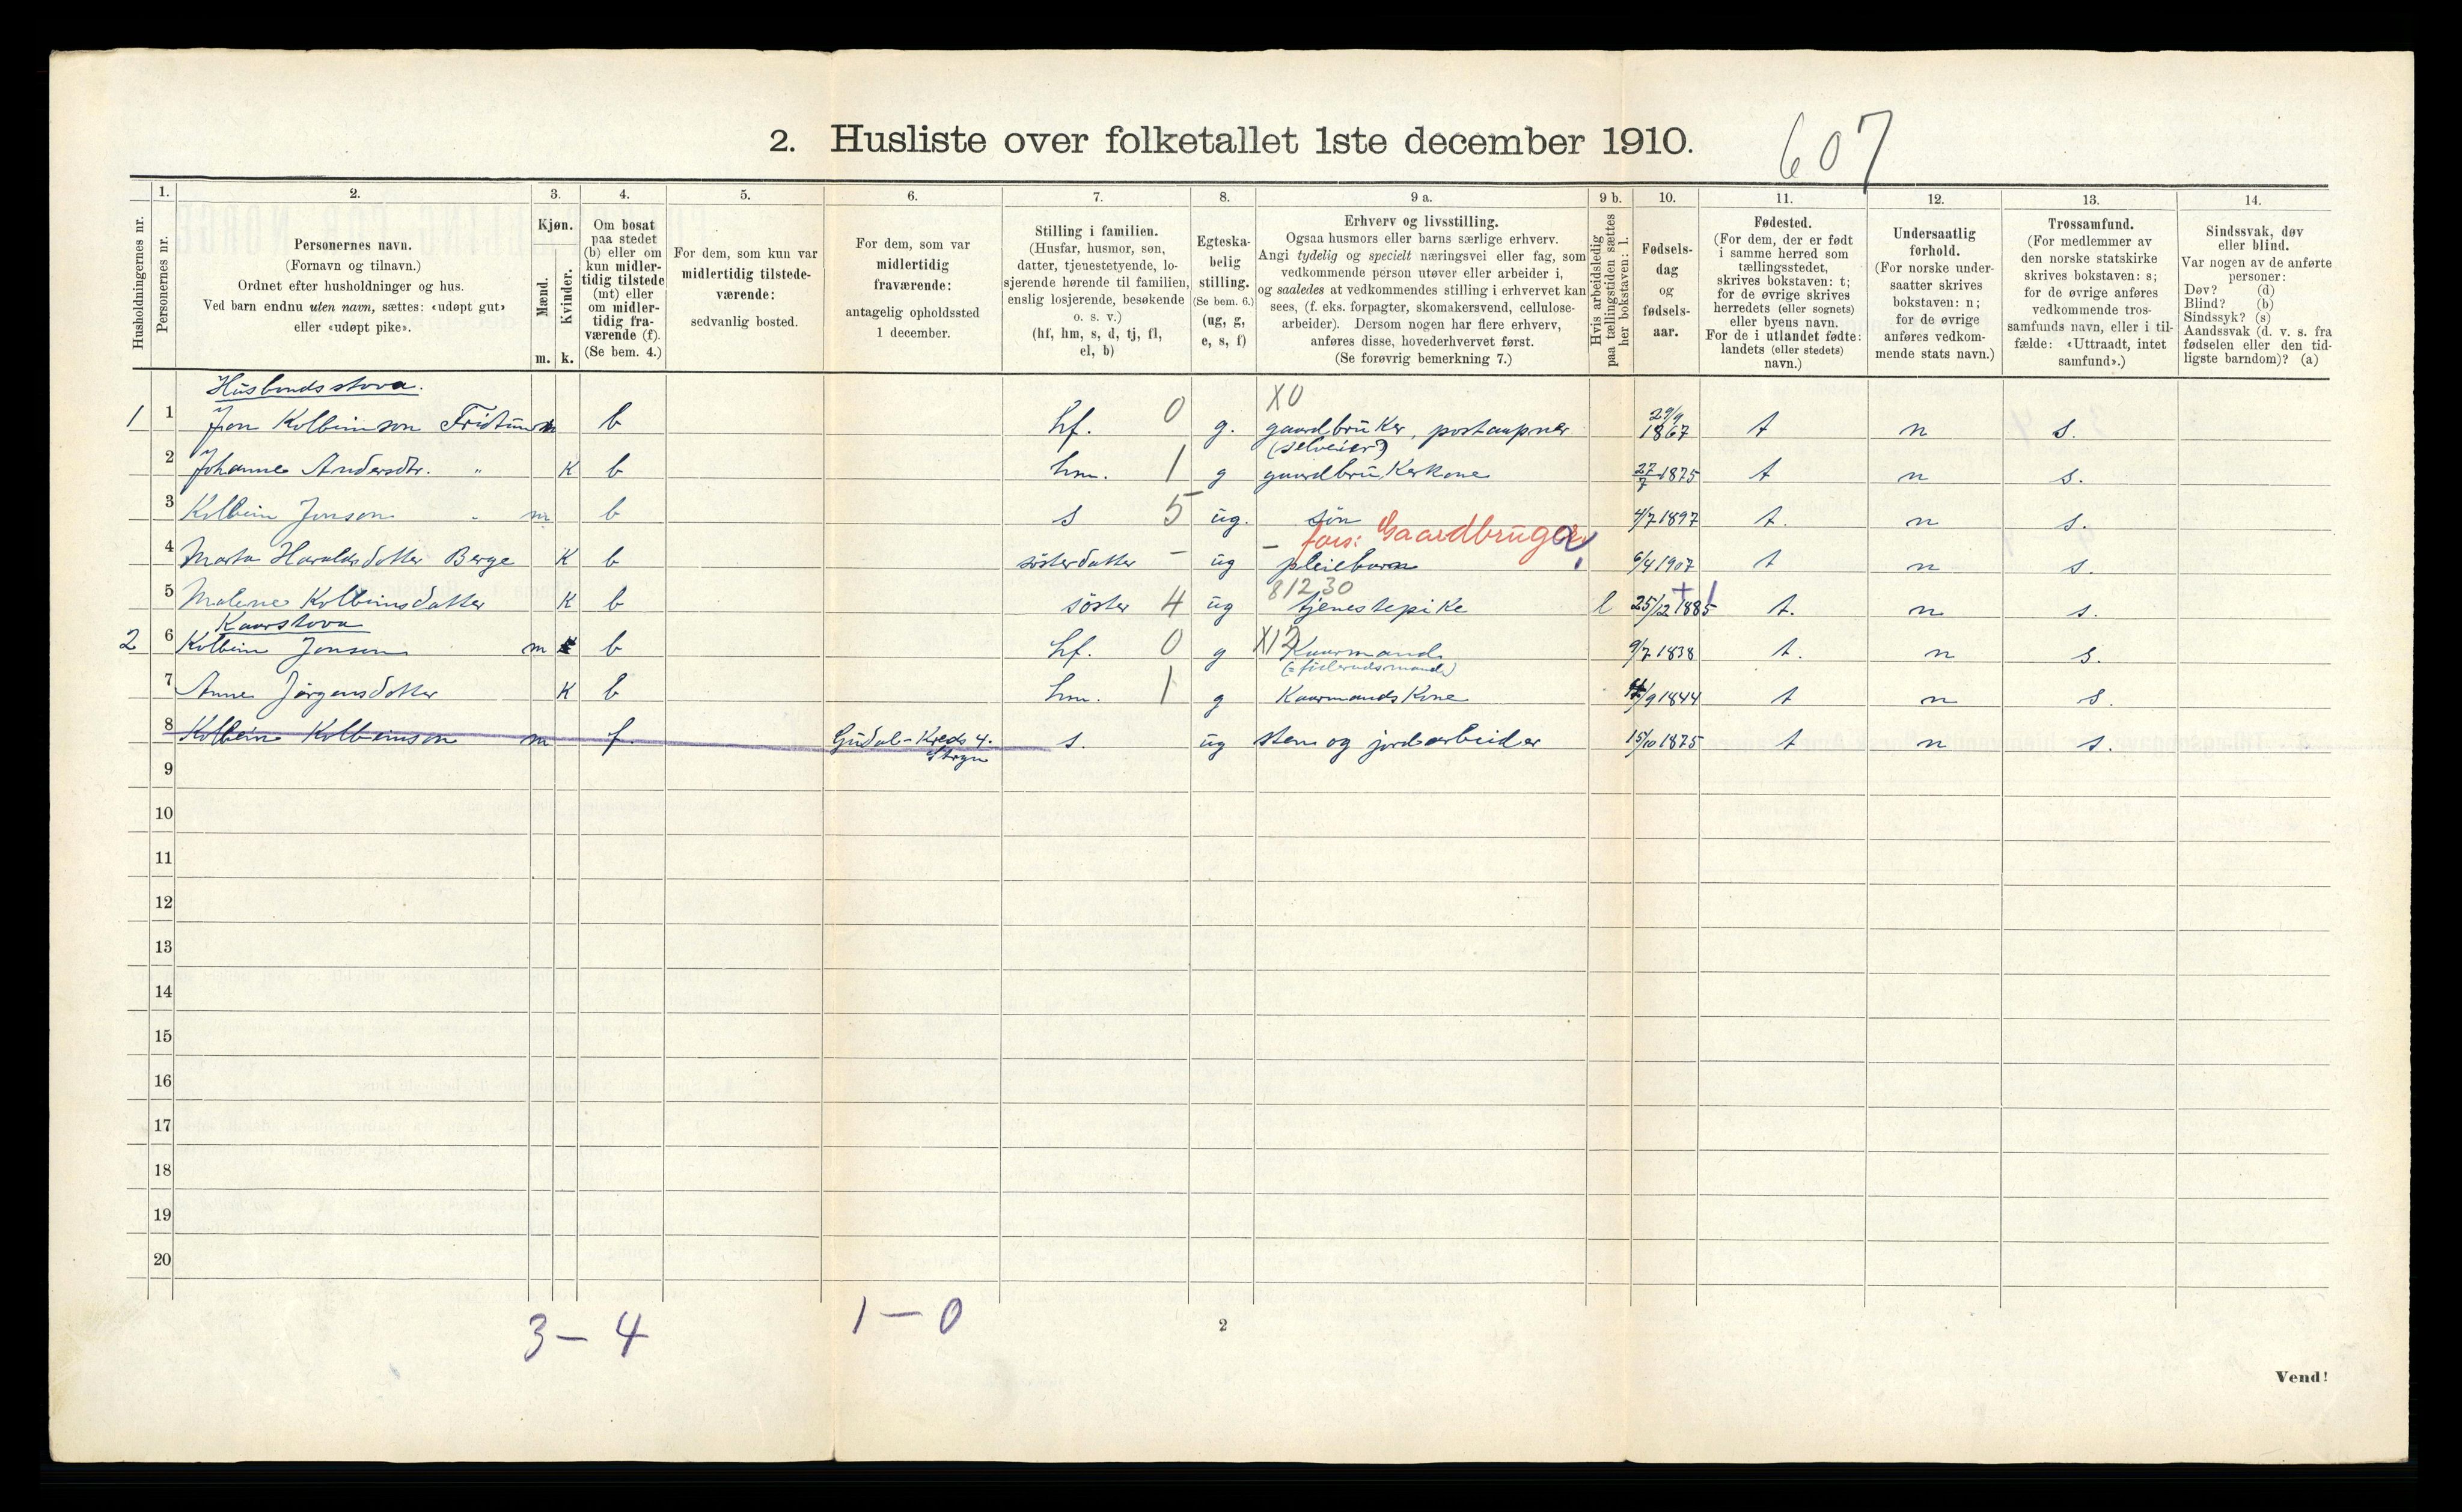 2. Husliste over folketallet 1ste december 1910.
607
1. 2. 3. 4. 5. 6. 7. 8. 9 a. 9 b. 10. 11. 12. 13. 14.
Husholdningernes nr.
Personernes nr.
Personernes navn.
(Fornavn og tilnavn.)
Ordnet efter husholdninger og hus.
Ved barn endnu uten navn, sættes: «udøpt gut»
eller «udøpt pike».
Kjøn.
Mænd.
Kvinder.
m. k.
Om bosat
paa stedet
(b) eller om
kun midler-
tidig tilstede
(mt) eller
om midler-
tidig fra-
værende (f).
(Se bem. 4.)
For dem, som kun var
midlertidig tilstede-
værende:
sedvanlig bosted.
For dem, som var
midlertidig
fraværende:
antagelig opholdssted
1 december.
Stilling i familien.
(Husfar, husmor, søn,
datter, tjenestetyende, lo-
sjerende hørende til familien,
enslig losjerende, besøkende
o. s. v.)
(hf, hm, s, d, tj, fl,
el, b)
Egteska-
belig
stilling.
(Se bem. 6.)
(ug, g,
e, s, f)
Erhverv og livsstilling.
Ogsaa husmors eller barns særlige erhverv.
Angi tydelig og specielt næringsvei eller fag, som
vedkommende person utøver eller arbeider i,
og saaledes at vedkommendes stilling i erhvervet kan
sees, (f. eks. forpagter, skomakersvend, cellulose-
arbeider). Dersom nogen har flere erhverv,
anføres disse, hovederhvervet først.
(Se forøvrig bemerkning 7.)
Hvis arbeidsledig
paa tællingstiden sættes
her bokstaven: l.
Fødsels-
dag
og
fødsels-
aar.
Fødested.
(For dem, der er født
i samme herred som
tællingsstedet,
skrives bokstaven: t;
for de øvrige skrives
herredets (eller sognets)
eller byens navn.
For de i utlandet fødte:
landets (eller stedets)
navn.)
Undersaatlig
forhold.
(For norske under-
saatter skrives
bokstaven: n;
for de øvrige
anføres vedkom-
mende stats navn.)
Trossamfund.
(For medlemmer av
den norske statskirke
skrives bokstaven: s;
for de øvrige anføres
vedkommende tros-
samfunds navn, eller i til-
fælde: «Uttraadt, intet
samfund».)
Sindssvak, døv
eller blind.
Var nogen av de anførte
personer:
Døv? (d)
Blind? (b)
Sindssyk? (s)
Aandssvak (d. v. s. fra
fødselen eller den tid-
ligste barndom)? (a)
Husbondsstova.
X0
1 1 Jon Kolbeinson Fridtun m b hf. 0 g. gaardbruker, postaapner 29/9 1867 t n s.
(selveier)
2 Johanne Andersdtr. " K b hm. 1 g gaardbrukerkone 27/7 1875 t n s.
3 Kolbein Jonson " m b s 5 ug. søn 4/7 1897 t. n s.
fars: Gaardbruger
4 Marta Haraldsdotter Berge K b søsterdatter - ug - pleiebarn 6/4 1907 t n s.
81230
5 Malene Kolbeinsdatter K b søster 4 ug tjenestepike l 25/12 1885 t. n s.
Kaarstova
2 6 Kolbein Jonson m b hf. 0 g X12 Kaarmand 9/7 1838 t. n s.
(= føderaadsmand)
7 Anne Jørgensdotter K b hm. 1 g Kaarmands Kone /9 1844 t n s.
8 Kolbein Kolbeinson m f. Gudal-Kreds 4. s. ug sten og jordarbeider 15/10 1875 t n s.
Stryn
9
10
11
12
13
14
15
16
17
18
19
20
3 - 4
1 - 0
2
Vend!